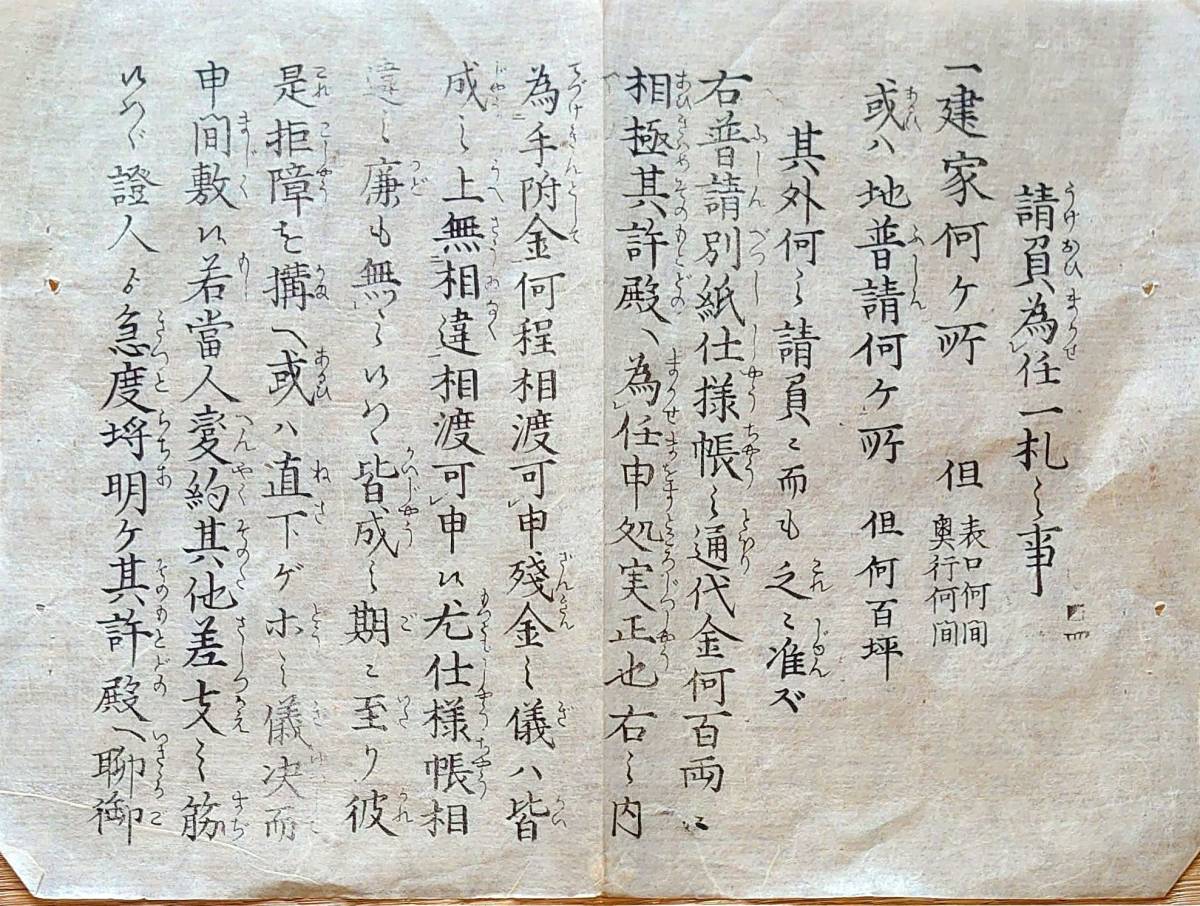 請負為任一札之事
一建家何ケ所 但 表口何間 奥行何間
或ハ地普請何ケ所 但何百坪
其外何之請負ニ而も之ニ准ズ
右普請別紙仕様帳之通代金何百両ニ
相極其許殿へ為任申処実正也右之内
為手附金何程相渡可申残金之儀ハ皆
成之上無相違相渡可申候尤仕様帳相
違之廉も無之候ハヽ皆成之期ニ至り彼
是拒障を搆へ或ハ直下ゲホ之儀决而
申間敷候若當人変約其他差支之筋
候ハヾ證人ゟ急度埒明ケ其許殿へ聊御